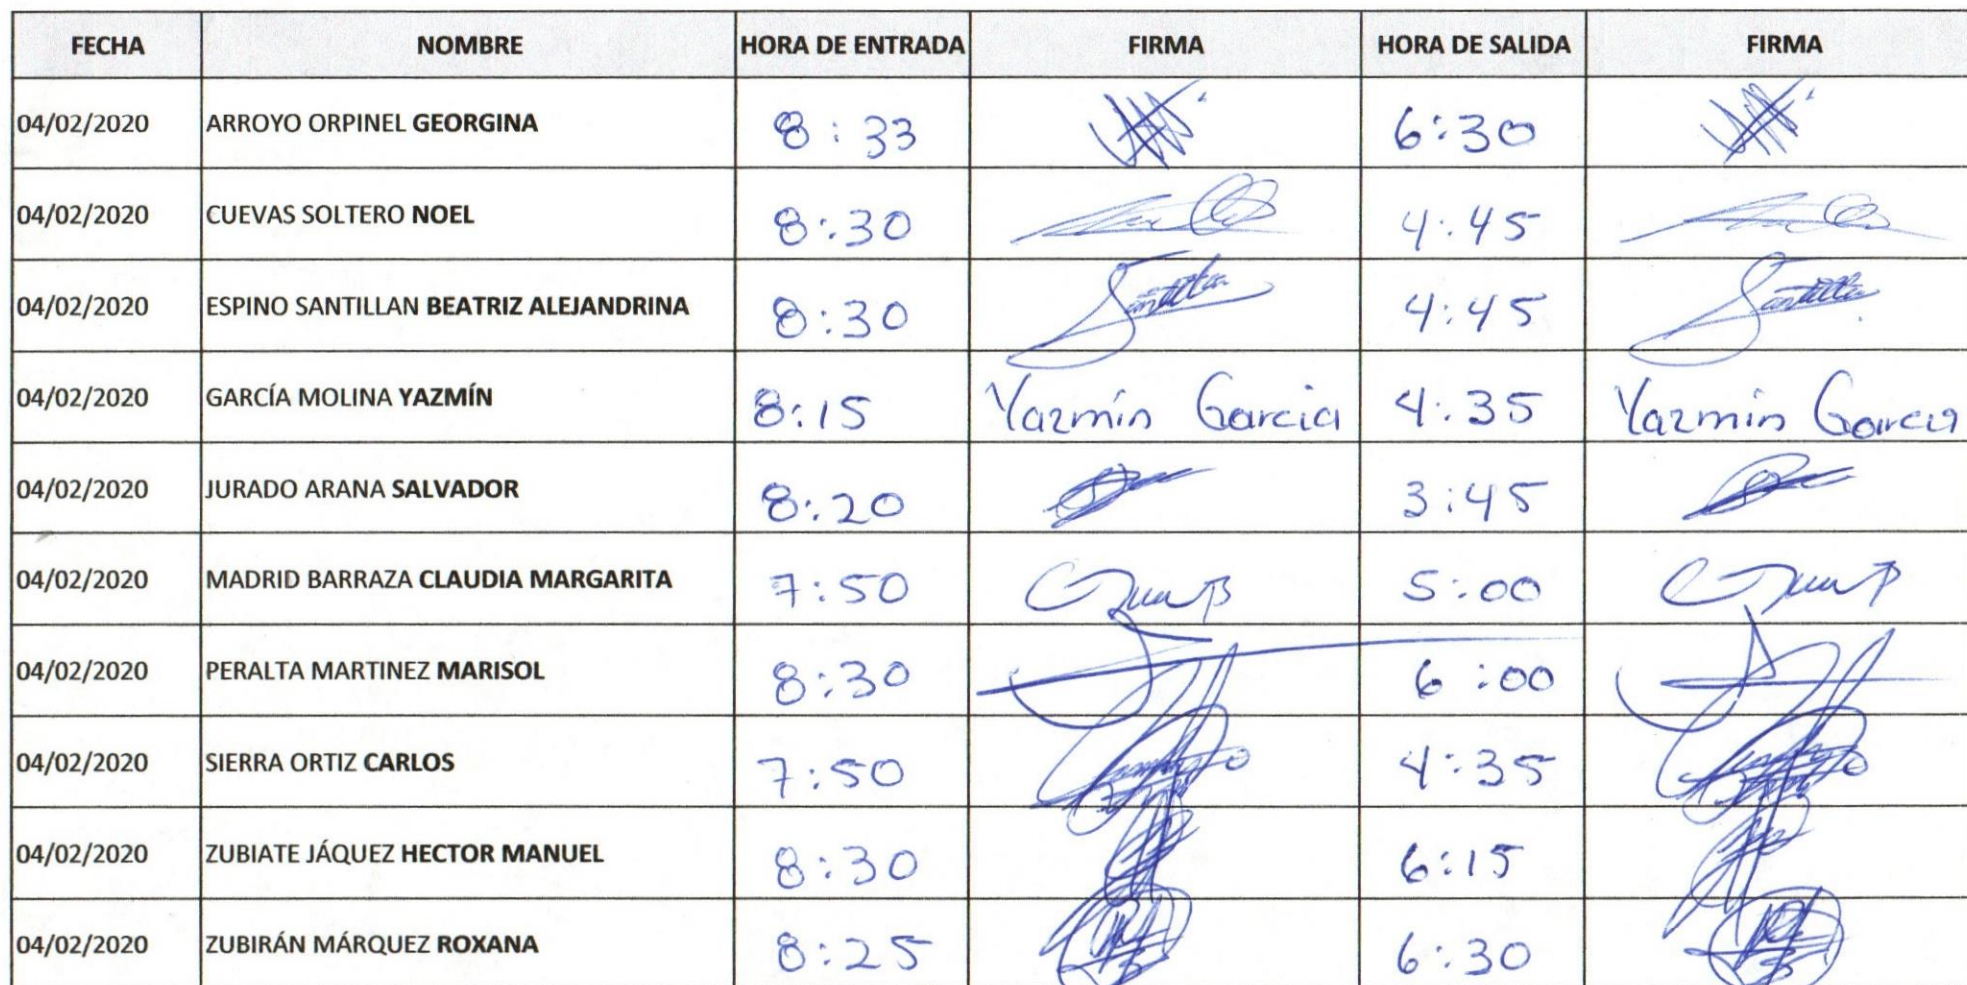 FECHA NOMBRE HORA DE ENTRADA FIRMA HORA DE SALIDA FIRMA
04/02/2020 ARROYO ORPINEL GEORGINA 8:33 6:30
04/02/2020 CUEVAS SOLTERO NOEL 8:30 4:45
04/02/2020 ESPINO SANTILLAN BEATRIZ ALEJANDRINA 8:30 4:45
04/02/2020 GARCÍA MOLINA YAZMÍN 8:15 Yazmín Garcia 4:35 Yazmín Garcia
04/02/2020 JURADO ARANA SALVADOR 8:20 3:45
04/02/2020 MADRID BARRAZA CLAUDIA MARGARITA 7:50 5:00
04/02/2020 PERALTA MARTINEZ MARISOL 8:30 6:00
04/02/2020 SIERRA ORTIZ CARLOS 7:50 4:35
04/02/2020 ZUBIATE JÁQUEZ HECTOR MANUEL 8:30 6:15
04/02/2020 ZUBIRÁN MÁRQUEZ ROXANA 8:25 6:30